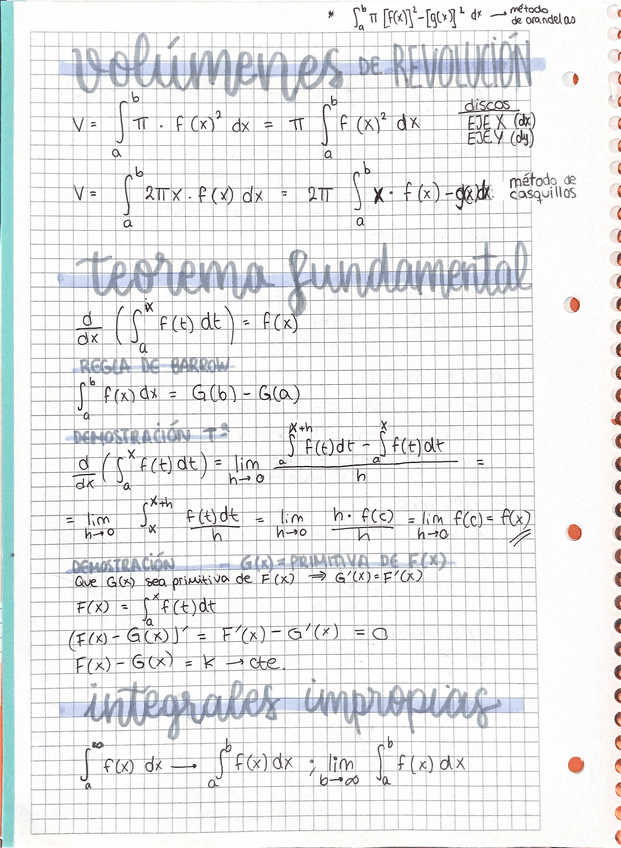 * ∫_a^b π [f(x)]² - [g(x)]² dx → método de arandelas
volúmenes DE REVOLUCIÓN
V = ∫_a^b π · f(x)² dx = π ∫_a^b f(x)² dx
discos
EJE X (dx)
EJE Y (dy)
V = ∫_a^b 2πx · f(x) dx = 2π ∫_a^b x · f(x) - g(x)dx.
método de
casquillos
teorema fundamental
d/dx (∫_a^x f(t) dt) = f(x)
REGLA DE BARROW
∫_a^b f(x) dx = G(b) - G(a)
DEMOSTRACIÓN Tª
d/dx (∫_a^x f(t) dt) = lim_{h→0} (∫_a^{x+h} f(t)dt - ∫_a^x f(t)dt)/h =
= lim_{h→0} ∫_x^{x+h} f(t)dt/h = lim_{h→0} h·f(c)/h = lim_{h→0} f(c) = f(x)
DEMOSTRACIÓN - G(x) = PRIMITIVA DE F(X)
Que G(x) sea primitiva de F(x) ⇒ G'(x) = F'(x)
F(x) = ∫_a^x f(t)dt
(F(x) - G(x))' = F'(x) - G'(x) = 0
F(x) - G(x) = K → cte.
integrales impropias
∫_a^∞ f(x) dx → ∫_a^b f(x) dx ; lim_{b→∞} ∫_a^b f(x) dx